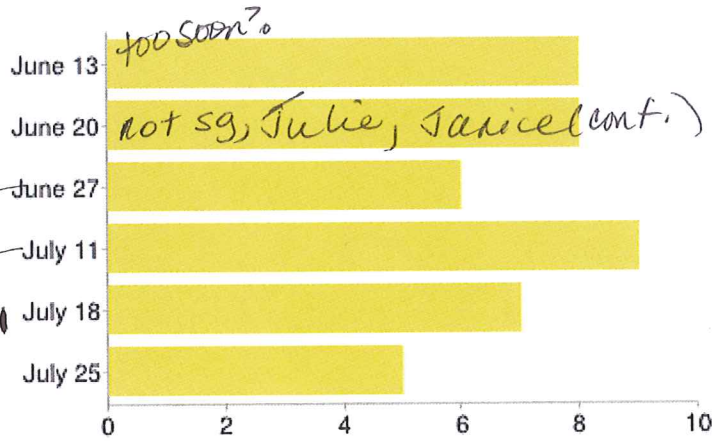 too soon?
June 13
June 20 not sg, Julie, Janice (conf.)
June 27
July 11
July 18
July 25
0 2 4 6 8 10